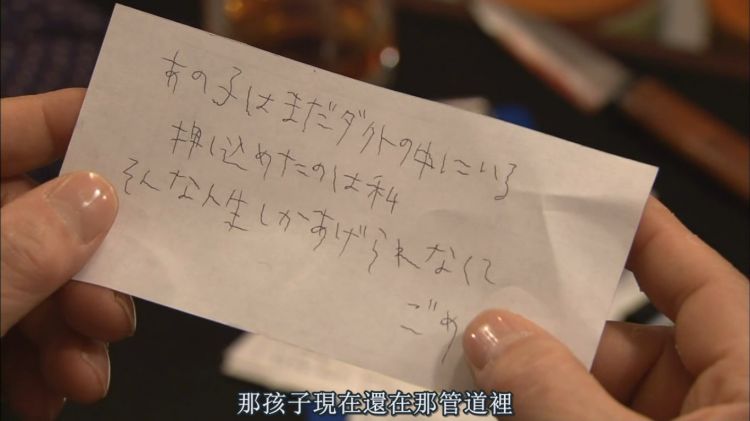 あの子はまだダクトの中にいる
押し込めたのは私
そんな人生しかあげられなくて
ごめ
那孩子現在還在那管道裡